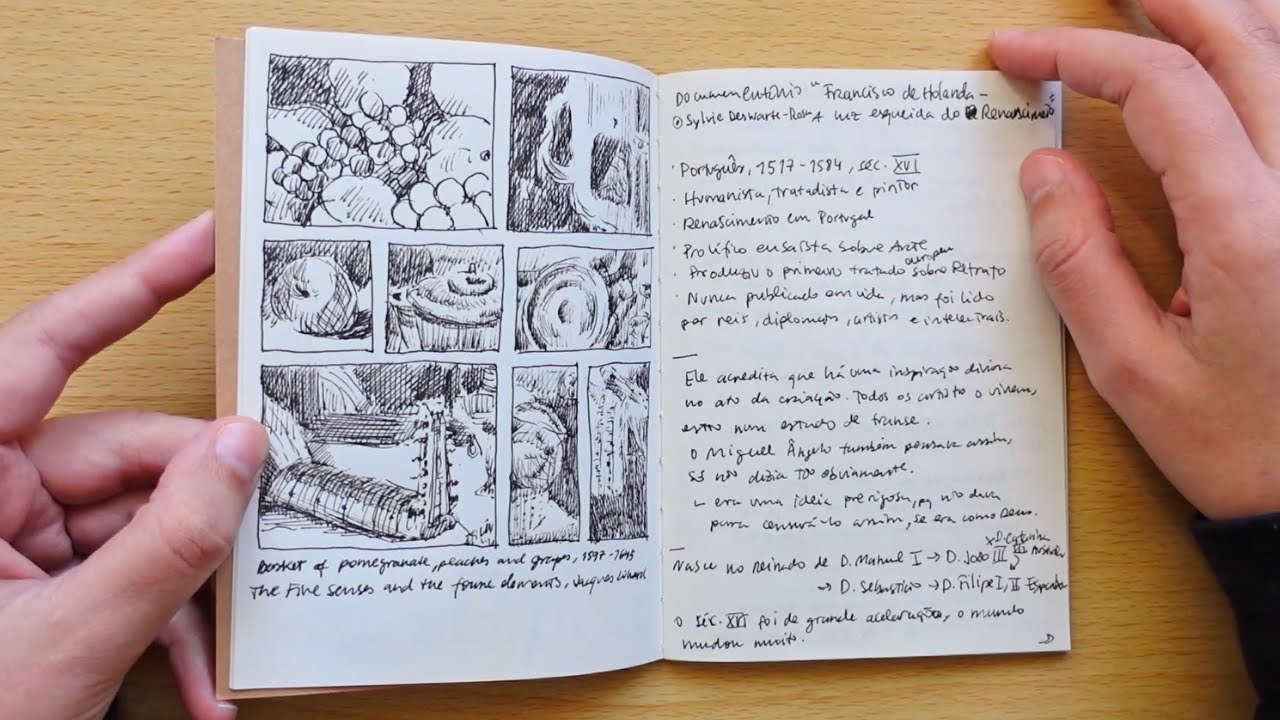 Basket of pomegranate, peaches and grapes, 1597-1645
The Five senses and the four elements, Jaques Linard
Documentário "Francisco de Holanda -
Sylvie Deswarte-Rosa A luz esqueida do Renascimento"
· Português, 1517-1584, séc. XVI
· Humanista, tratadista e pintor
· Renascimento em Portugal
· Prolífio ensaísta sobre Arte
· Produziu o primeiro tratado europeu sobre Retrato
· Nunca publicado em vida, mas foi lido
por reis, diplomatas, artistas e intelectuais.
Ele acredita que há uma inspiração divina
no ato da criação. Todos os artistas o vivem,
estão num estado de transe.
O Miguel Ângelo também pensava assim,
só não dizia tão obviamente.
era uma ideia perigosa, pq não dava
para censurá-lo assim, se era como Deus.
x D. Catarina
Nasceu no reinado de D. Manuel I → D. João III
→ D. Sebastião → D. Filipe I, II Espanha
O séc. XVI foi de grande aceleração, o mundo
mudou muito.